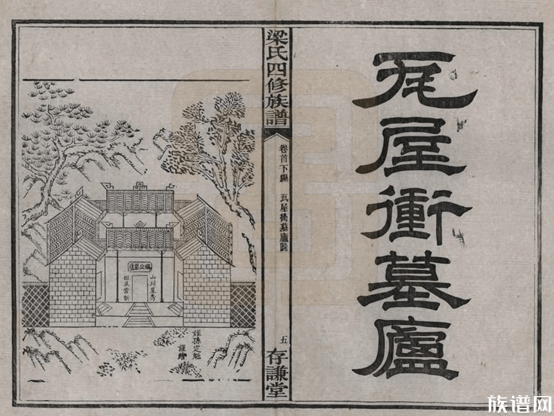 瓦屋衝墓廬
梁氏四修族譜
卷首下編
瓦屋衝墓廬圖
五
存謙堂
族谱网